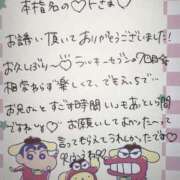 本指名の♡トさま♡
お誘い頂いてありがとうございました!
お久しぶり〜♡ラッキーセブンの70日♡
相変わらず楽しくて、でもえっちで…
お兄さんとすごす時間いつもあという間
ですね♡ お願いしてよかったと
言ってもらえてうれしかったです♡